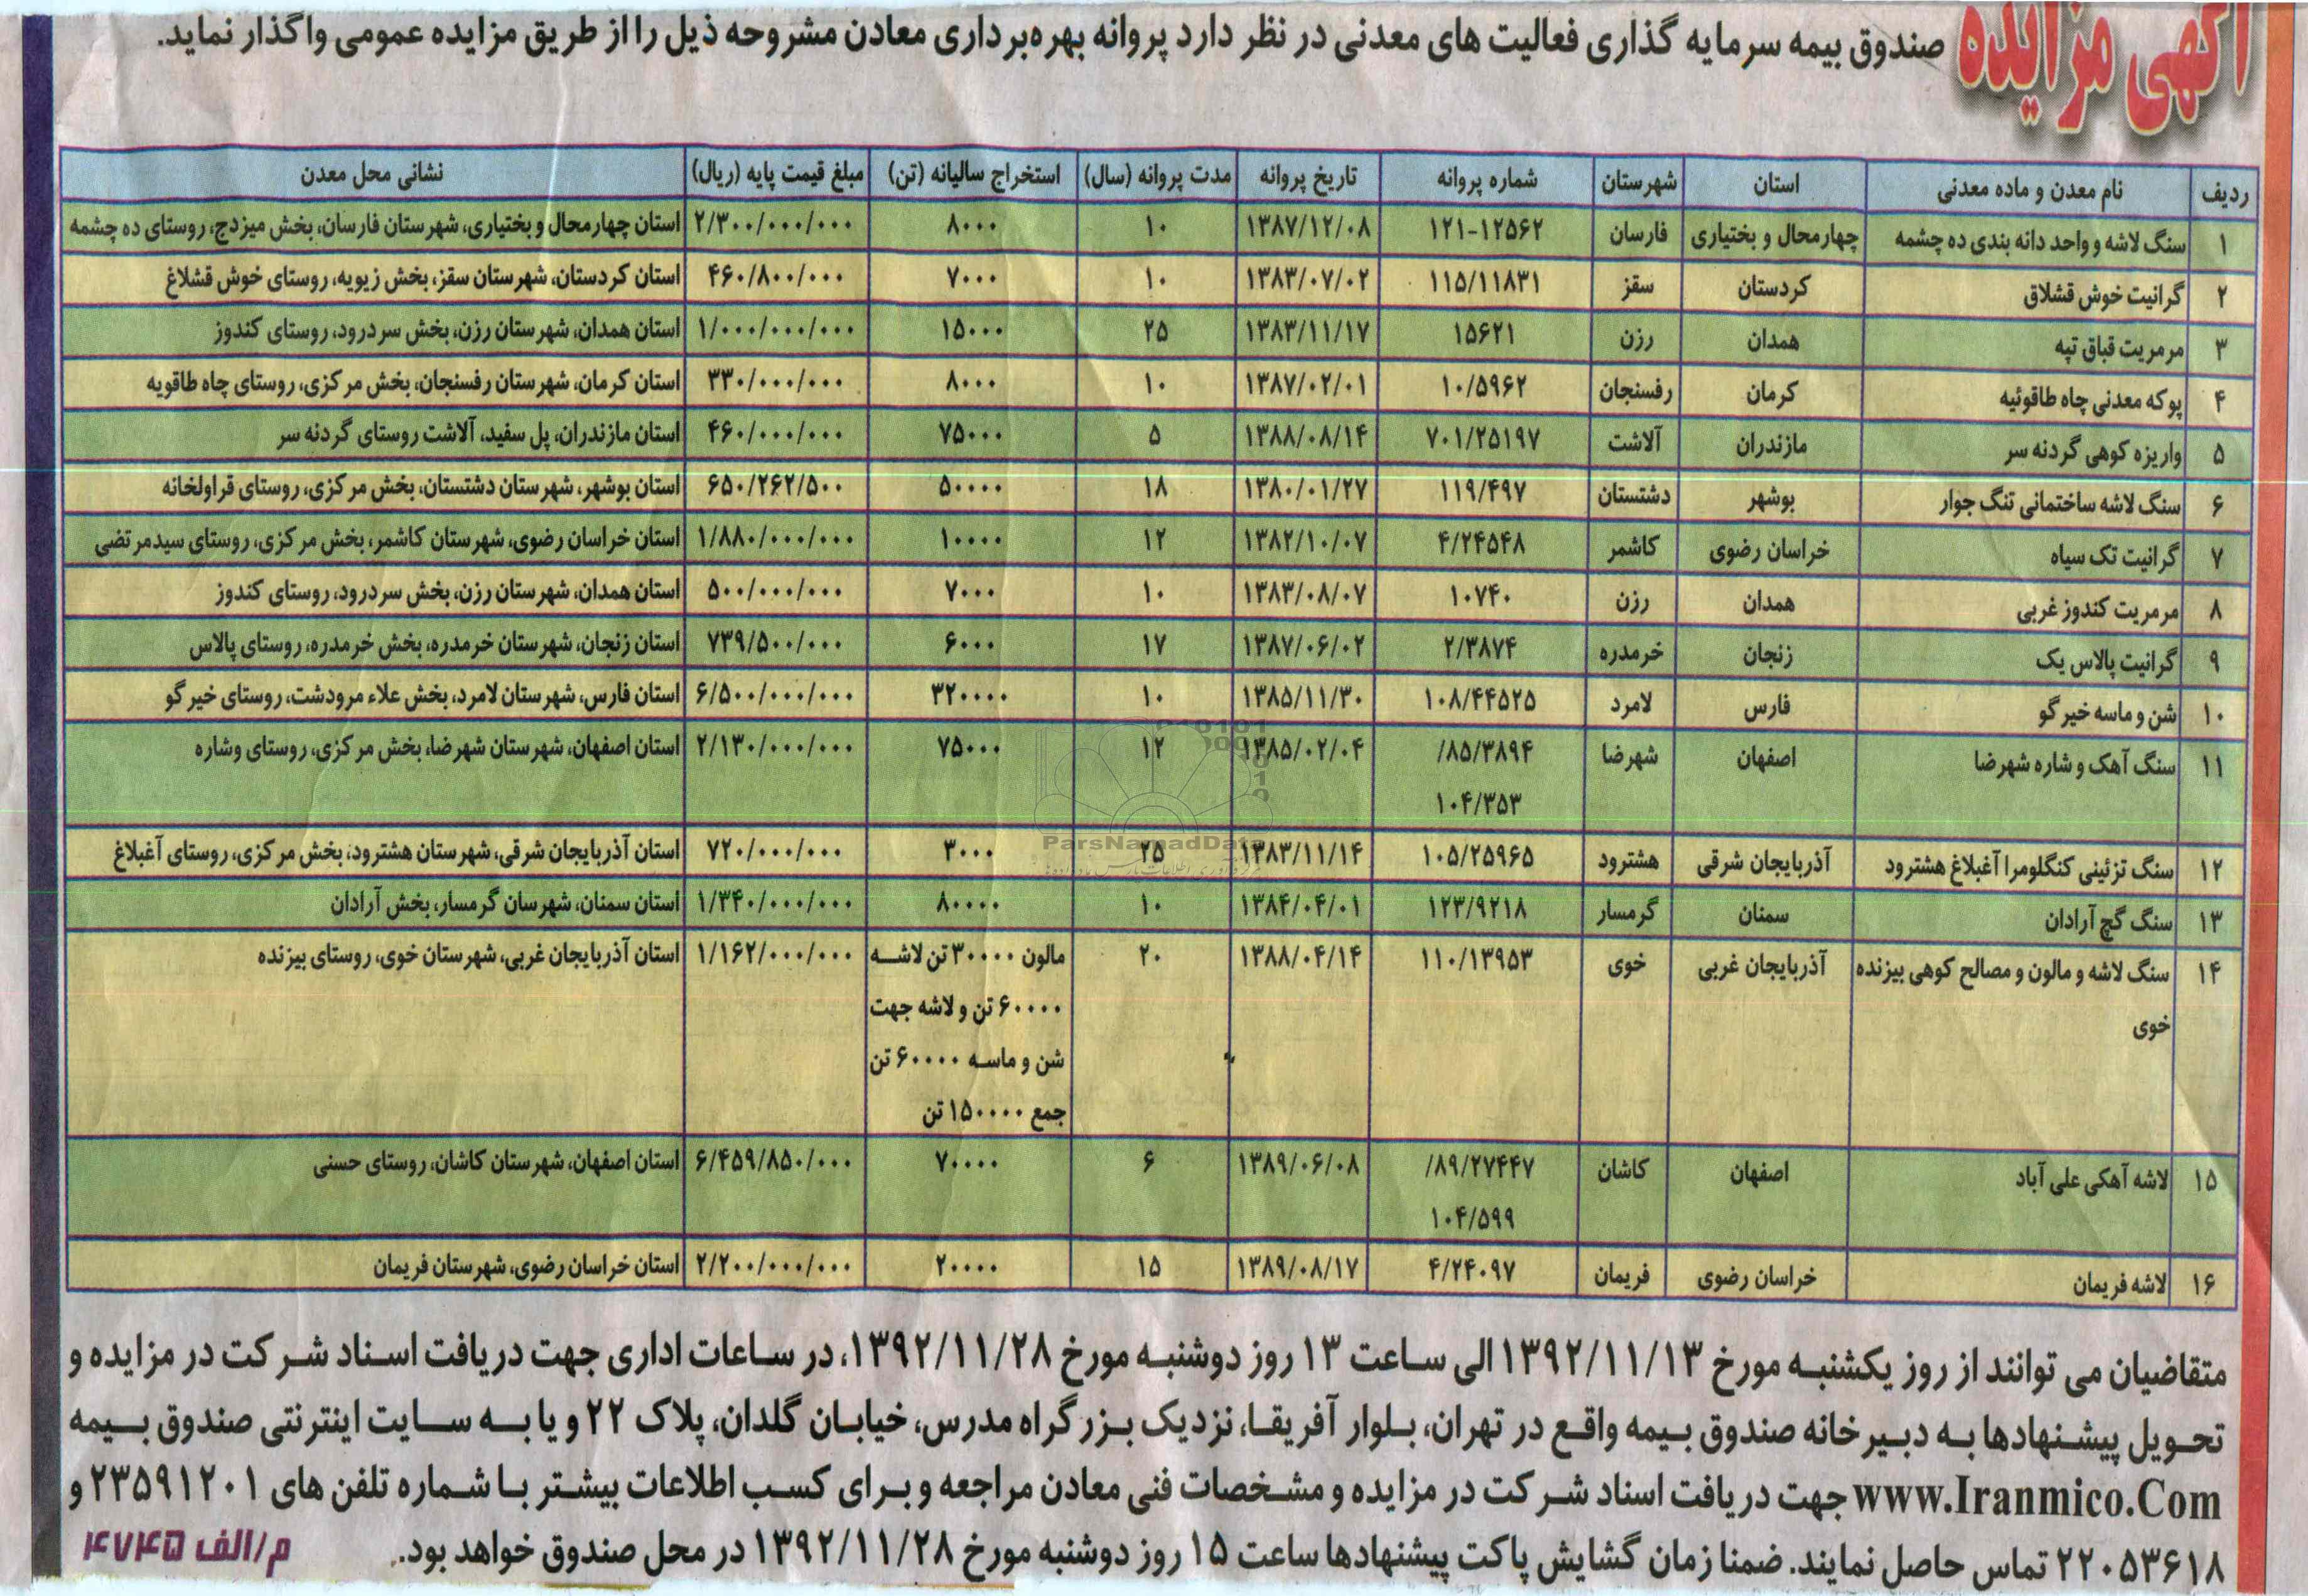 آگهی مزایده
صندوق بیمه سرمایه گذاری فعالیت های معدنی در نظر دارد پروانه بهره‌برداری معادن مشروحه ذیل را از طریق مزایده عمومی واگذار نماید.
ردیف نام معدن و ماده معدنی استان شهرستان شماره پروانه تاریخ پروانه مدت پروانه (سال) استخراج سالیانه (تن) مبلغ قیمت پایه (ریال) نشانی محل معدن
۱ سنگ لاشه و واحد دانه بندی ده چشمه چهارمحال و بختیاری فارسان ۱۲۱-۱۲۵۶۲ ۱۳۸۷/۱۲/۰۸ ۱۰ ۸۰۰۰ ۲/۳۰۰/۰۰۰/۰۰۰ استان چهارمحال و بختیاری، شهرستان فارسان، بخش میزدج، روستای ده چشمه
۲ گرانیت خوش قشلاق کردستان سقز ۱۱۵/۱۱۸۳۱ ۱۳۸۳/۰۷/۰۲ ۱۰ ۷۰۰۰ ۴۶۰/۸۰۰/۰۰۰ استان کردستان، شهرستان سقز، بخش زیویه، روستای خوش قشلاغ
۳ مرمریت قباق تپه همدان رزن ۱۵۶۲۱ ۱۳۸۳/۱۱/۱۷ ۲۵ ۱۵۰۰۰ ۱/۰۰۰/۰۰۰/۰۰۰ استان همدان، شهرستان رزن، بخش سردرود، روستای کندوز
۴ پوکه معدنی چاه طاقوئیه کرمان رفسنجان ۱۰/۵۹۶۲ ۱۳۸۷/۰۲/۰۱ ۱۰ ۸۰۰۰ ۳۳۰/۰۰۰/۰۰۰ استان کرمان، شهرستان رفسنجان، بخش مرکزی، روستای چاه طاقویه
۵ واریزه کوهی گردنه سر مازندران آلاشت ۷۰۱/۲۵۱۹۷ ۱۳۸۸/۰۸/۱۴ ۵ ۷۵۰۰۰ ۴۶۰/۰۰۰/۰۰۰ استان مازندران، پل سفید، آلاشت روستای گردنه سر
۶ سنگ لاشه ساختمانی تنگ جوار بوشهر دشتستان ۱۱۹/۴۹۷ ۱۳۸۰/۰۱/۲۷ ۱۸ ۵۰۰۰۰ ۶۵۰/۲۶۲/۵۰۰ استان بوشهر، شهرستان دشتستان، بخش مرکزی، روستای قراولخانه
۷ گرانیت تک سیاه خراسان رضوی کاشمر ۴/۲۴۵۴۸ ۱۳۸۲/۱۰/۰۷ ۱۲ ۱۰۰۰۰ ۱/۸۸۰/۰۰۰/۰۰۰ استان خراسان رضوی، شهرستان کاشمر، بخش مرکزی، روستای سیدمرتضی
۸ مرمریت کندوز غربی همدان رزن ۱۰۷۴۰ ۱۳۸۳/۰۸/۰۷ ۱۰ ۷۰۰۰ ۵۰۰/۰۰۰/۰۰۰ استان همدان، شهرستان رزن، بخش سردرود، روستای کندوز
۹ گرانیت پالاس یک زنجان خرمدره ۲/۳۸۷۴ ۱۳۸۷/۰۶/۰۲ ۱۷ ۶۰۰۰ ۷۳۹/۵۰۰/۰۰۰ استان زنجان، شهرستان خرمدره، بخش خرمدره، روستای پالاس
۱۰ شن و ماسه خیر گو فارس لامرد ۱۰۸/۴۴۵۲۵ ۱۳۸۵/۱۱/۳۰ ۱۰ ۳۲۰۰۰۰ ۶/۵۰۰/۰۰۰/۰۰۰ استان فارس، شهرستان لامرد، بخش علاء مرودشت، روستای خیر گو
۱۱ سنگ آهک و شاره شهرضا اصفهان شهرضا ۸۵/۳۸۹۴/ ۱۳۸۵/۰۲/۰۴ ۱۲ ۷۵۰۰۰ ۲/۱۳۰/۰۰۰/۰۰۰ استان اصفهان، شهرستان شهرضا، بخش مرکزی، روستای وشاره
۱۰۴/۳۵۳
ParsNamadData
۱۲ سنگ تزئینی کنگلومرا آغبلاغ هشترود آذربایجان شرقی هشترود ۱۰۵/۲۵۹۶۵ ۱۳۸۳/۱۱/۱۴ ۲۵ ۳۰۰۰ ۷۲۰/۰۰۰/۰۰۰ استان آذربایجان شرقی، شهرستان هشترود، بخش مرکزی، روستای آغبلاغ
۱۳ سنگ گچ آرادان سمنان گرمسار ۱۲۳/۹۲۱۸ ۱۳۸۴/۰۴/۰۱ ۱۰ ۸۰۰۰۰ ۱/۳۴۰/۰۰۰/۰۰۰ استان سمنان، شهرسان گرمسار، بخش آرادان
۱۴ سنگ لاشه و مالون و مصالح کوهی بیزنده آذربایجان غربی خوی ۱۱۰/۱۳۹۵۳ ۱۳۸۸/۰۴/۱۴ ۲۰ مالون ۳۰۰۰۰ تن لاشه ۱/۱۶۲/۰۰۰/۰۰۰ استان آذربایجان غربی، شهرستان خوی، روستای بیزنده
خوی ۶۰۰۰۰ تن و لاشه جهت
شن و ماسه ۶۰۰۰۰ تن
جمع ۱۵۰۰۰۰ تن
۱۵ لاشه آهکی علی آباد اصفهان کاشان ۸۹/۲۷۴۴۷/ ۱۳۸۹/۰۶/۰۸ ۶ ۷۰۰۰۰ ۶/۴۵۹/۸۵۰/۰۰۰ استان اصفهان، شهرستان کاشان، روستای حسنی
۱۰۴/۵۹۹
۱۶ لاشه فریمان خراسان رضوی فریمان ۴/۲۴۰۹۷ ۱۳۸۹/۰۸/۱۷ ۱۵ ۲۰۰۰۰ ۲/۲۰۰/۰۰۰/۰۰۰ استان خراسان رضوی، شهرستان فریمان
متقاضیان می توانند از روز یکشنبه مورخ ۱۳۹۲/۱۱/۱۳ الی ساعت ۱۳ روز دوشنبه مورخ ۱۳۹۲/۱۱/۲۸، در ساعات اداری جهت دریافت اسناد شرکت در مزایده و
تحویل پیشنهادها به دبیرخانه صندوق بیمه واقع در تهران، بلوار آفریقا، نزدیک بزرگراه مدرس، خیابان گلدان، پلاک ۲۲ و یا به سایت اینترنتی صندوق بیمه
www.Iranmico.Com جهت دریافت اسناد شرکت در مزایده و مشخصات فنی معادن مراجعه و برای کسب اطلاعات بیشتر با شماره تلفن های ۲۳۵۹۱۲۰۱ و
۲۲۰۵۳۶۱۸ تماس حاصل نمایند. ضمنا زمان گشایش پاکت پیشنهادها ساعت ۱۵ روز دوشنبه مورخ ۱۳۹۲/۱۱/۲۸ در محل صندوق خواهد بود. م/الف ۴۷۴۵